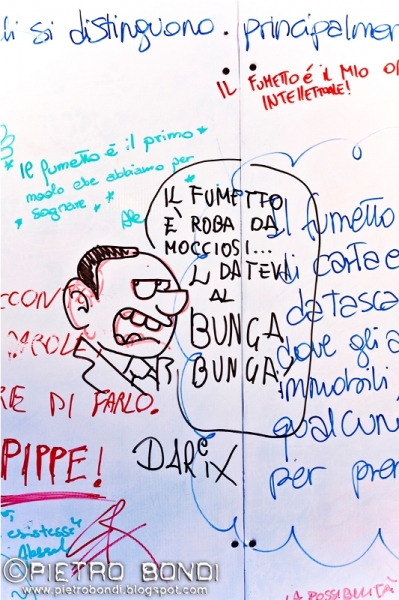 li si distinguono. principalmen
IL FUMETTO É IL MIO OR
INTELLETTUALE!
*
*
le fumetto è il primo *
modo che abbiamo per
* sognare * *
Ale
IL FUMETTO
È ROBA DA
MOCCIOSI...
DATEVI
AL
BUNGA
BUNGA!
Il fumetto
di carta e
datasca
dove gli a
immobili,
qualcun
per pren
ECCON
RE DI FARLO.
PIPPE!
DARIX
esistess
LA POSSIBILITÀ
©PIETRO BONDI
www.pietrobondi.blogspot.com